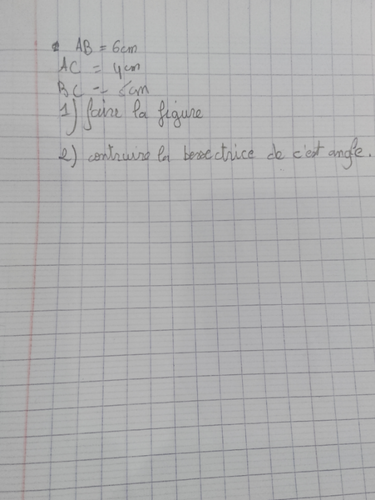 AB = 6cm
AC = 4cm
BC = cm
1) faire la figure
2) contruire la bessectrice de c'est angle.